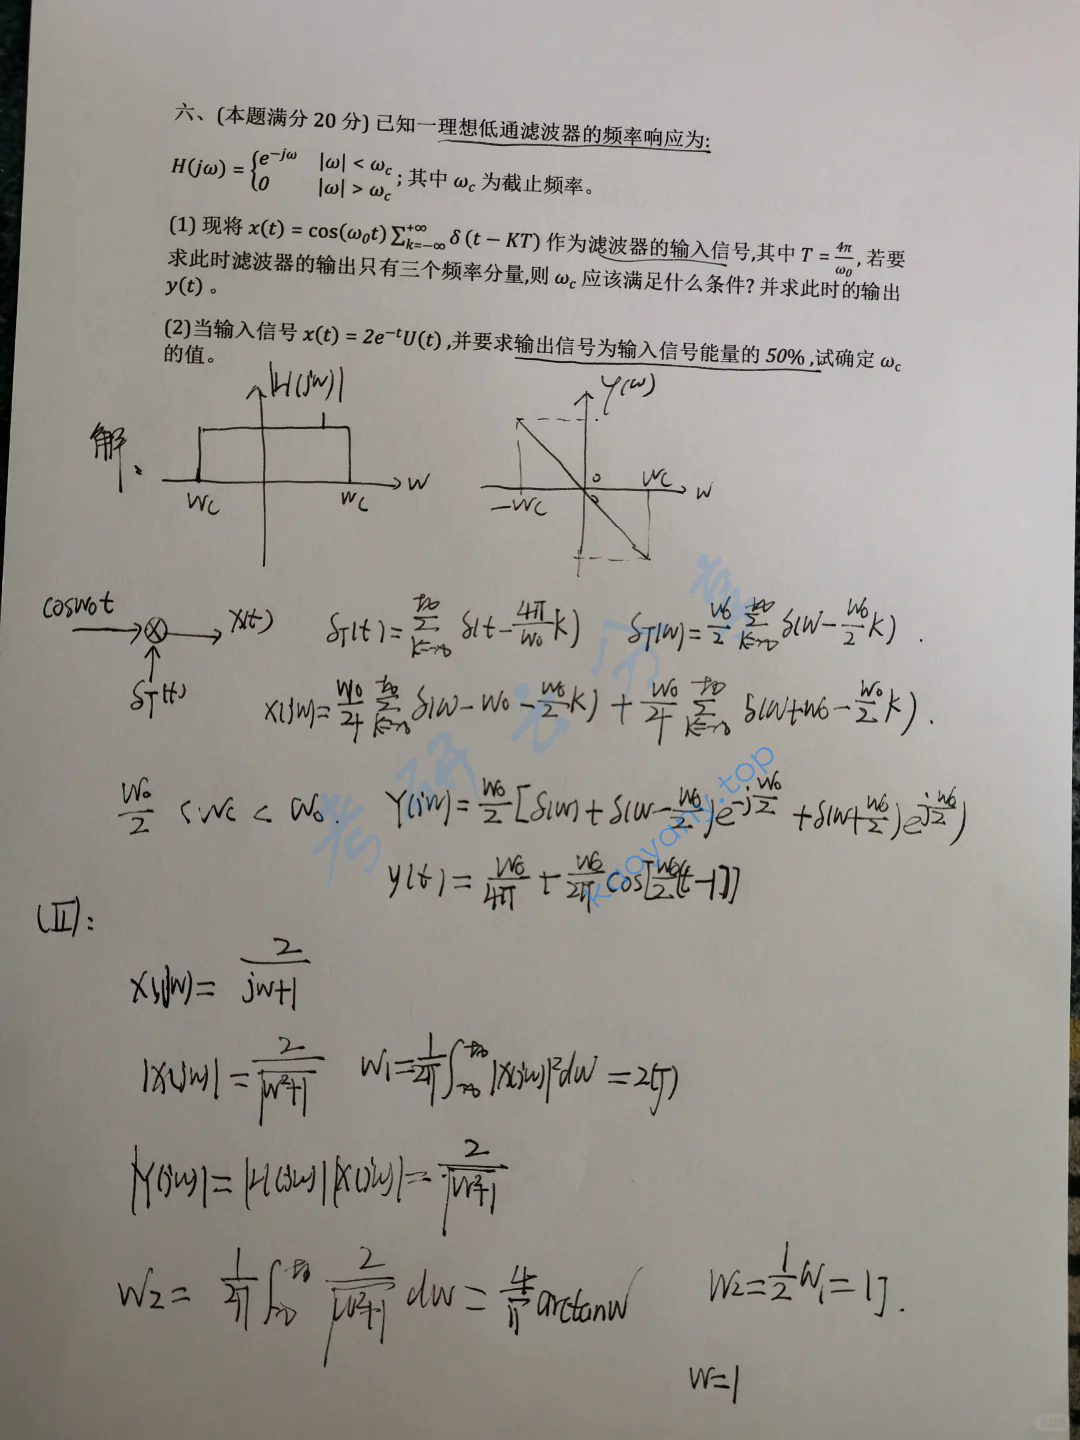 六、(本题满分 20 分) 已知一理想低通滤波器的频率响应为:
H(jω) = { e^{-jω} |ω| < ω_c ; 0 |ω| > ω_c ; 其中 ω_c 为截止频率。
(1) 现将 x(t) = cos(ω₀t) ∑_{k=-∞}^{+∞} δ (t − KT) 作为滤波器的输入信号,其中 T = 4π/ω₀, 若要
求此时滤波器的输出只有三个频率分量,则 ω_c 应该满足什么条件? 并求此时的输出
y(t) 。
(2)当输入信号 x(t) = 2e^{-t}U(t) ,并要求输出信号为输入信号能量的 50% ,试确定 ω_c
的值。
|H(jw)| φ(w)
解:
wc wc w −wc 0 wc w
cosw₀t x(t)
δT(t)
δT(t) = ∑_{k=-∞}^{+∞} δ(t − 4π/w₀ k) δT(w) = w₀/2 ∑_{k=-∞}^{+∞} δ(w − w₀/2 k) .
X(jw) = w₀/4 ∑_{k=-∞}^{+∞} δ(w − w₀ − w₀/2 k) + w₀/4 ∑_{k=-∞}^{+∞} δ(w + w₀ − w₀/2 k) .
w₀/2 < wc < w₀. Y(jw) = w₀/2 [δ(w) + δ(w − w₀/2) e^{-j w₀/2} + δ(w + w₀/2) e^{j w₀/2})
y(t) = w₀/4π + w₀/2π cos[w₀/2 (t−1)]
(II):
X(jw) = 2/(jw+1)
|X(jw)| = 2/√(w²+1) W₁ = 1/2π ∫_{-∞}^{+∞} |X(jw)|² dw = 2(J)
|Y(jw)| = |H(jw)| |X(jw)| = 2/√(w²+1)
W₂ = 1/2π ∫_{-∞}^{+∞} 2/√(w²+1) dw = 4/π arctanw W₂ = 1/2 W₁ = 1J .
w=1
考研云分享
kaoyany.top